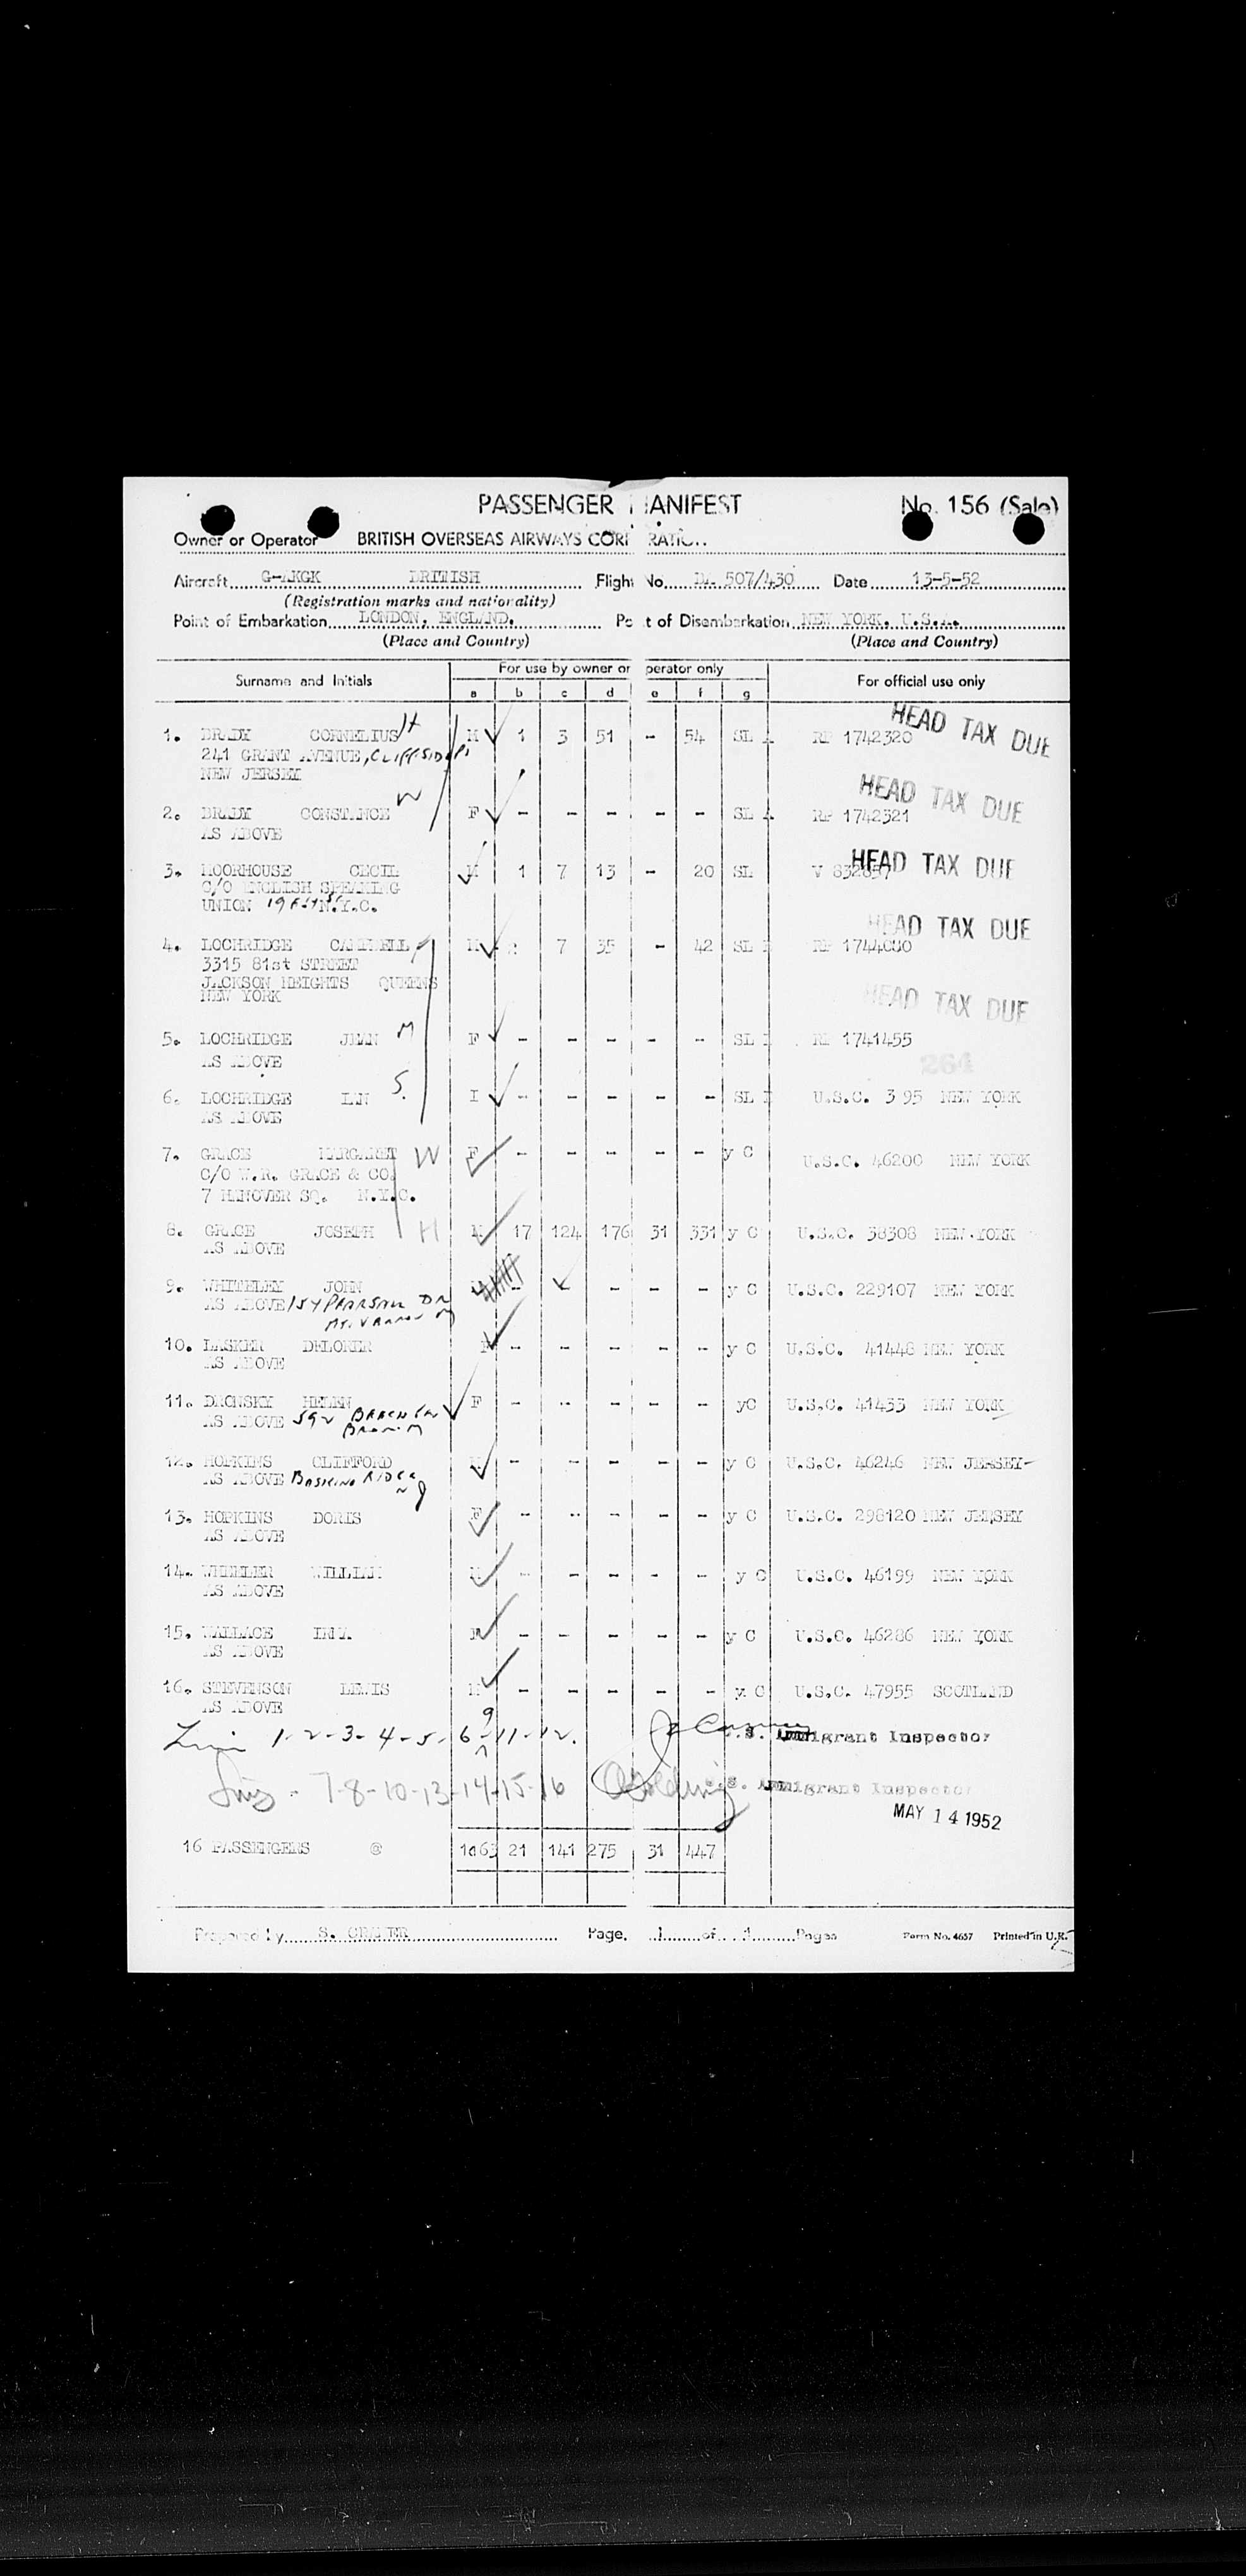 PASSENGER MANIFEST No. 156 (Sale)
Owner or Operator BRITISH OVERSEAS AIRWAYS CORP RATION.
Aircraft G-AKGK BRITISH Flight No. BA. 507/430 Date 13-5-52
(Registration marks and nationality)
Point of Embarkation LONDON, ENGLAND. Point of Disembarkation NEW YORK, U.S.A.
(Place and Country) (Place and Country)
Surname and Initials For use by owner or operator only For official use only
a b c d e f g
HEAD TAX DUE
1. BRADY CORNELIUS H M 1 3 51 - 54 SL A RP 1742320
241 GRANT AVENUE, CLIFFSIDE PK
NEW JERSEY
HEAD TAX DUE
2. BRADY CONSTANCE W F - - - - - SL A RP 1742321
AS ABOVE
HEAD TAX DUE
3. MOORHOUSE CECIL M 1 7 13 - 20 SL V 832657
C/O ENGLISH SPEAKING
UNION N.Y.C.
HEAD TAX DUE
4. LOCHRIDGE CAMPBELL M 7 35 - 42 SL RP 1744080
3315 81st STREET
JACKSON HEIGHTS QUEENS
NEW YORK
HEAD TAX DUE
5. LOCHRIDGE JEAN M F - - - - - SL RP 1741455
AS ABOVE
264
6. LOCHRIDGE IAN S. I - - - - - SL U.S.C. 3 95 NEW YORK
AS ABOVE
7. GRACE MARGARET W F - - - - - y C U.S.C. 46200 NEW YORK
C/O W.R. GRACE & CO.
7 HANOVER SQ. N.Y.C.
8. GRACE JOSEPH H M 17 124 176 31 331 y C U.S.C. 38308 NEW YORK
AS ABOVE
9. WHITELEY JOHN - - - - y C U.S.C. 229107 NEW YORK
AS ABOVE 154 PEARSALL DR
MT. VERNON
10. LASKER DELORER F - - - - - y C U.S.C. 41448 NEW YORK
AS ABOVE
11. DRONSKY HELEN F - - - - - yC U.S.C. 41433 NEW YORK
AS ABOVE 592 BEACH
12. HOPKINS CLIFFORD M - - - - - y C U.S.C. 46246 NEW JERSEY
AS ABOVE BASKING RIDGE
NJ
13. HOPKINS DORIS F - - - - - y C U.S.C. 298120 NEW JERSEY
AS ABOVE
14. WHEELER WILLIAM M - - - - - y C U.S.C. 46199 NEW YORK
AS ABOVE
15. WALLACE IRMA F - - - - - y C U.S.C. 46286 NEW YORK
AS ABOVE
16. STEVENSON LEWIS M - - - - - y C U.S.C. 47955 SCOTLAND
AS ABOVE
1-2-3-4-5-6-9-11-12. U.S. Immigrant Inspector
7-8-10-13-14-15-16 U.S. Immigrant Inspector
MAY 14 1952
16 PASSENGERS @ 1063 21 141 275 31 447
Prepared by S. Page 1 of 1 Pages Form No. 4657 Printed in U.K.